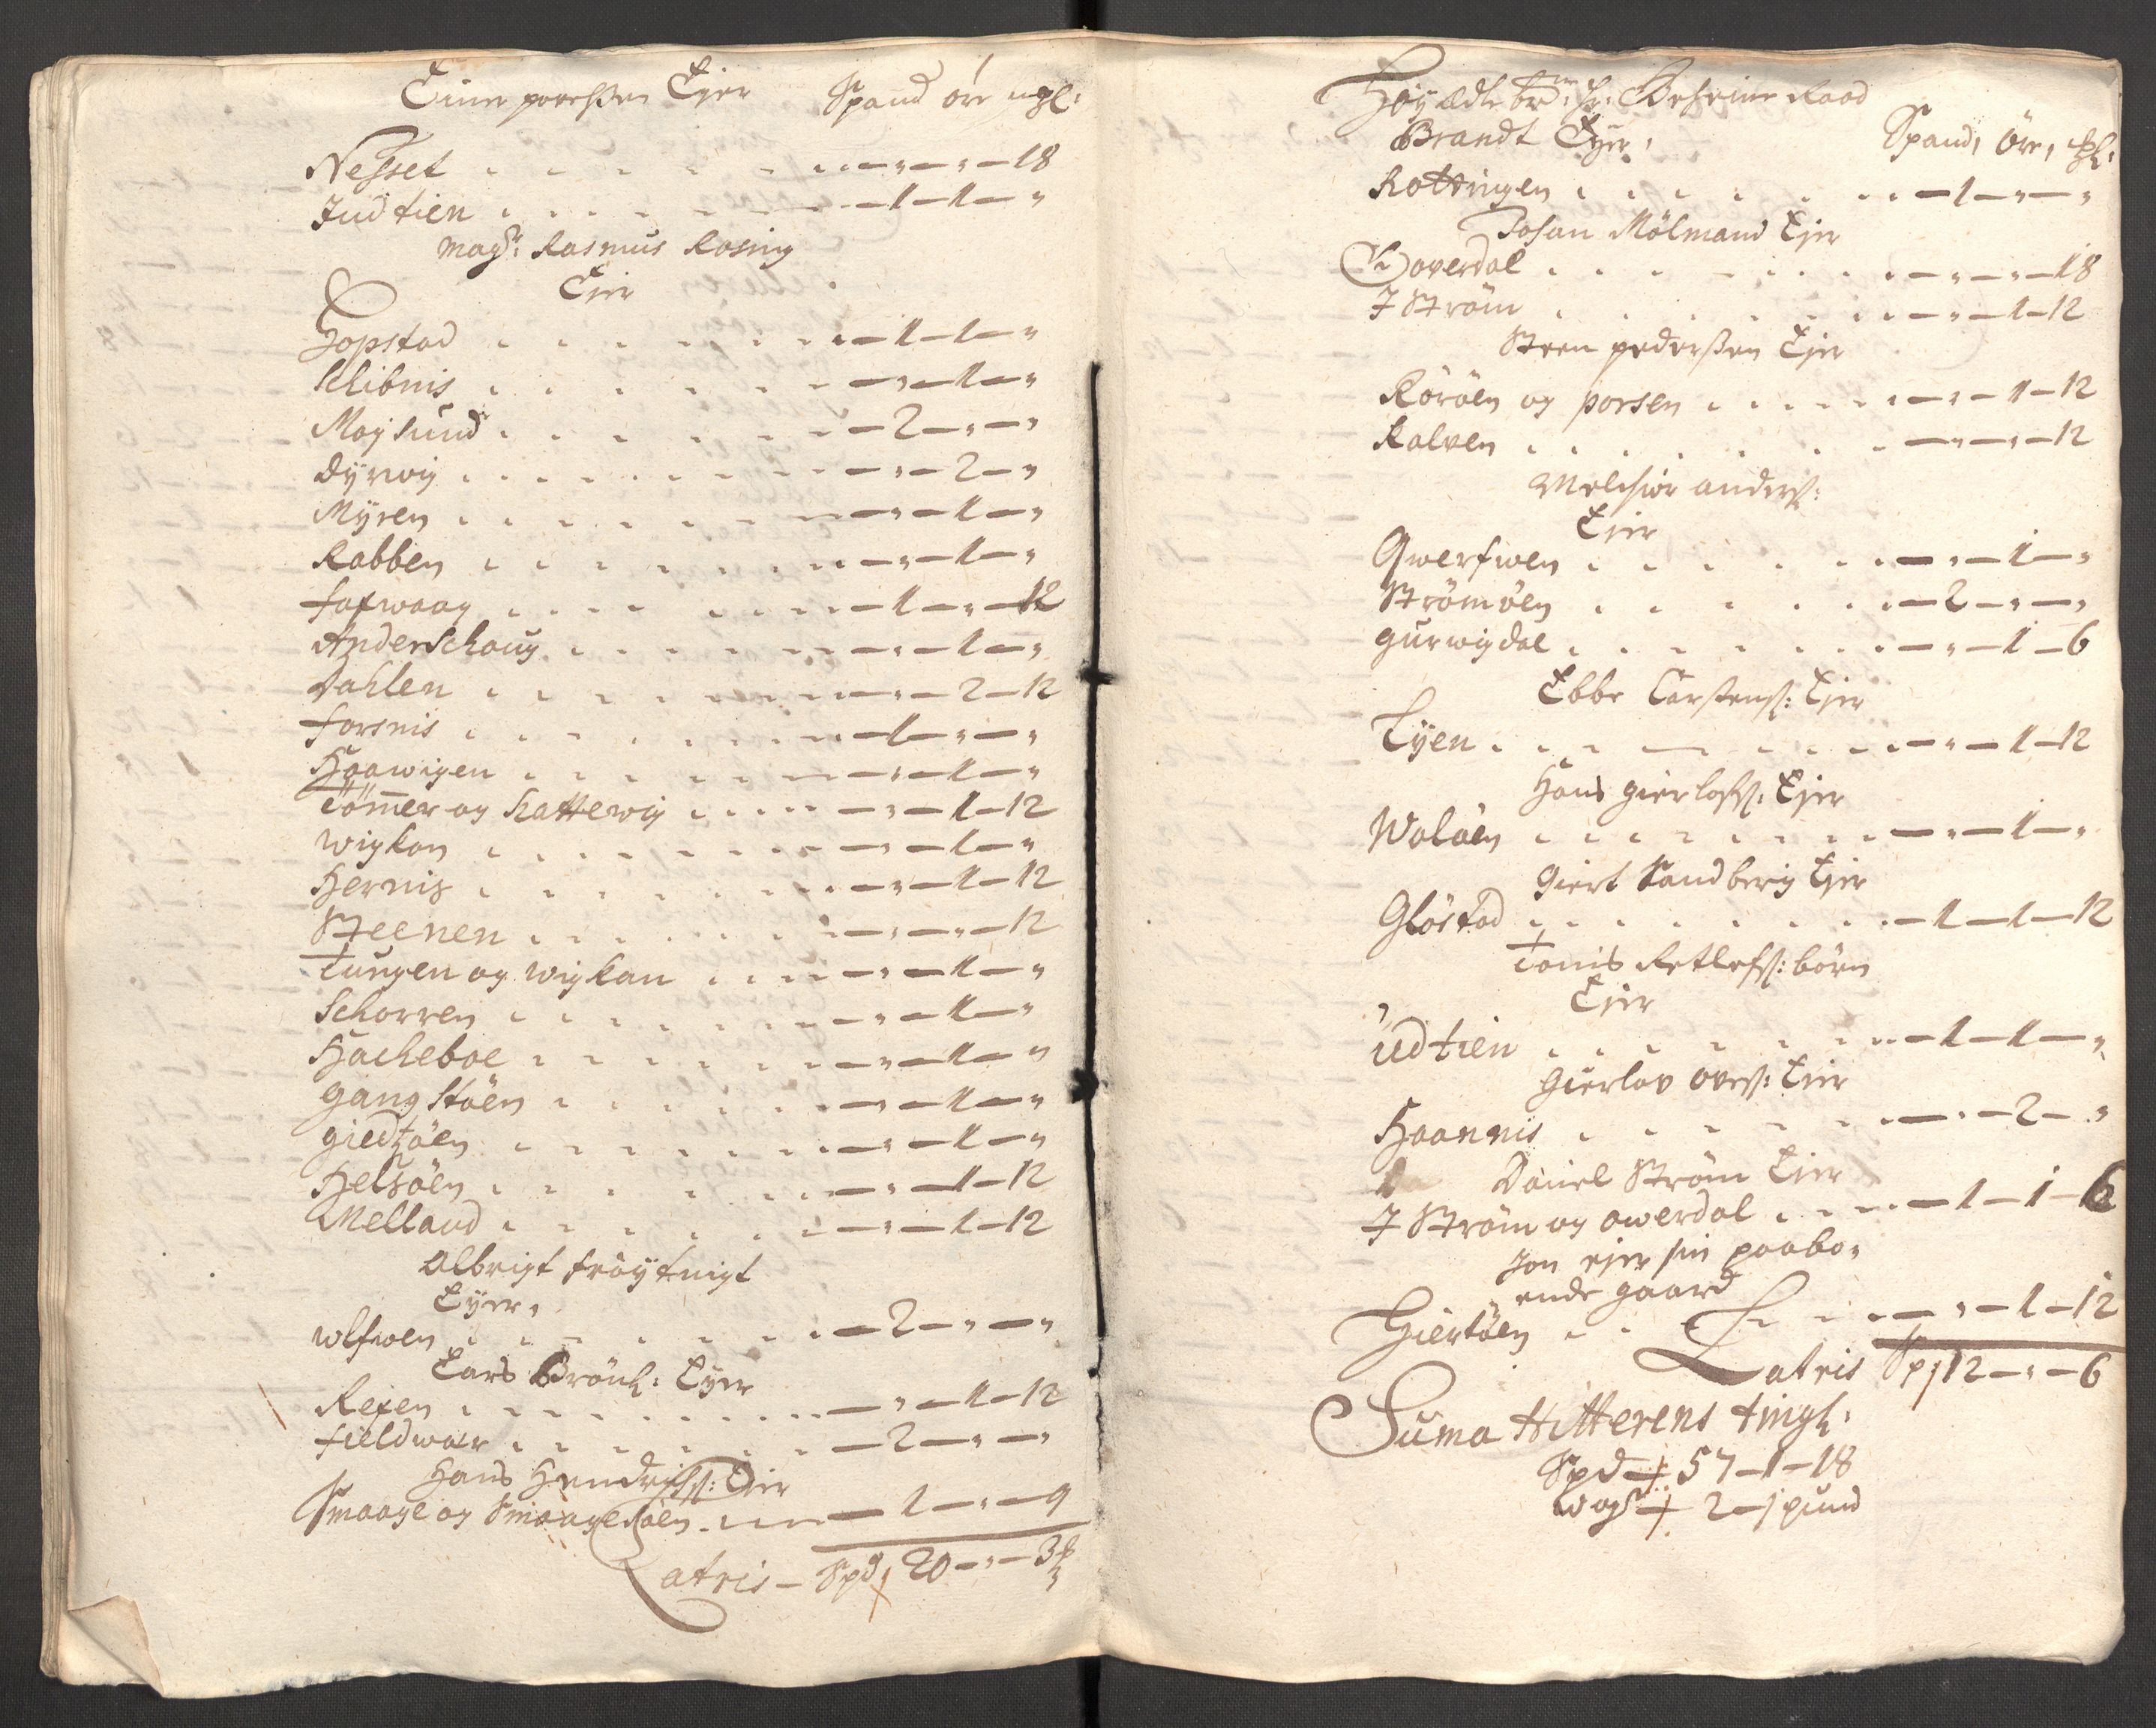 Einer poveßen Ejer Spand öre mgl:
Nesset - " - " - 18
Judtien - 1 - 1 - "
Magr: Rasmus Rosing
Ejer
Hopstad - 1 - 1 - "
Schibnis - " - 1 - "
Magsund - 2 - " - "
Dyrvig - " - 2 - "
Myren - " - 1 - "
Rabben - " - 1 - "
faxwaag - 1 - " - 12
Anderschoug - " - 1 - "
Dahlen - " - 2 - 12
forsnis - 1 - " - "
Haawigen - " - 1 - "
Tömmer og hattevig - " - 1 - 12
Wigkan - " - 1 - "
Hernis - " - 1 - 12
Steenen - " - " - 12
Tungen og wigkan - " - 1 - "
Schorren - " - 1 - "
Hacheboe - " - 1 - "
Gangstöen - " - 1 - "
giedtöen - " - 1 - "
Helsöen - " - 1 - 12
Melland - " - 1 - 12
Albrigt fröytnigt
Eyer,
Wlfwen - 2 - " - "
Lars Brönl: Eyer
Rexen - " - 1 - 12
fieldwær - 2 - " - "
Hans Hendrichs: Ejer
Smaage og Smaagesöen - 1 - " - 9
Latris - Spd 20 - " - 3
Höy Ædle br: hr: Geheime Raad
Brandt Eyer, Spand, öre, mgl:
Rottingen - 1 - " - "
Johan Mölmand Ejer
Howerdal - " - " - 18
J Ström - " - 1 - 12
Steen pederßen Ejer
Röröen og porsen - " - 1 - 12
Kalven - " - " - 12
Melchior anders:
Ejer
Qwerfwen - " - 1 - "
Strömöen - 2 - " - "
gurwigdal - " - 1 - 6
Ebbe Carstens: Ejer
Tyen - " - 1 - 12
Hans gierlofs: Ejer
Waløen - " - 1 - "
Giert Sandberg Ejer
Gløstad - 1 - 1 - 12
Tönis Retlefs: börn
Ejer
Udtien - 1 - 1 - "
Gierlov oves: Ejer
Haannis - " - 2 - "
Daniel Ström Ejer
J Ström og owerdal - 1 - 1 - 6
Jon ejer sin paabo,
ende gaard
Giertöen - " - 1 - 12
Latris Sp, 12 - " - 6
Suma Hitterens tingl:
Spd - 57 - 1 - 18
Wogr - 2 - 1 pund